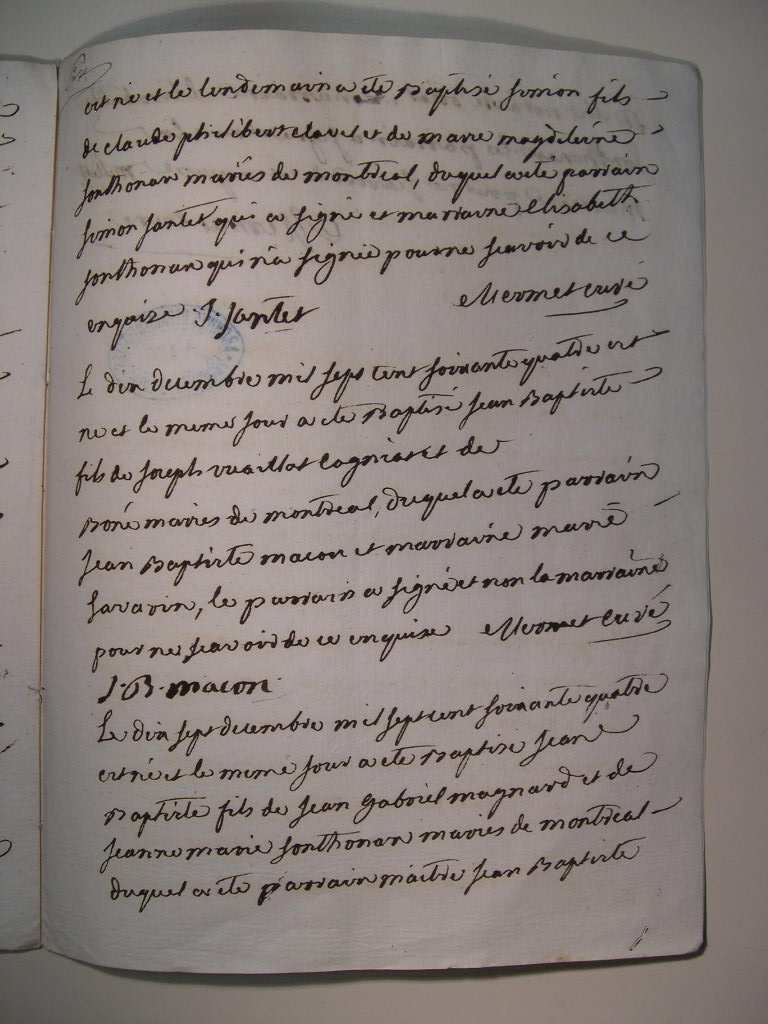 est né et le lendemain a eté Baptisé simon fils
de claude philibert clavel et de marie magdeleine
sonthonax mariés de montreal, duquel a eté parrain
simon jantet qui a signé et marraine elisabeth
sonthonax qui n'a signée pour ne scavoir de ce
enquise J. Jantet Mermet curé
Le dix decembre mil sept cent soixante quatre est
né et le meme jour a eté Baptisé Jean Baptiste
fils de joseph vuaillat Cagniat et de
Boné mariés de montreal, duquel a eté parrain
Jean Baptiste macon et marraine marie
savarin, le parrain a signé et non la marraine
pour ne scavoir de ce enquise Mermet Curé
J. B. macon
Le dix sept decembre mil sept cent soixante quatre
est né et le meme jour a eté Baptisé Jean
Baptiste fils de jean gabriel magnard et de
jeanne marie sonthonax mariés de montreal
duquel a eté parrain maitre jean Baptiste